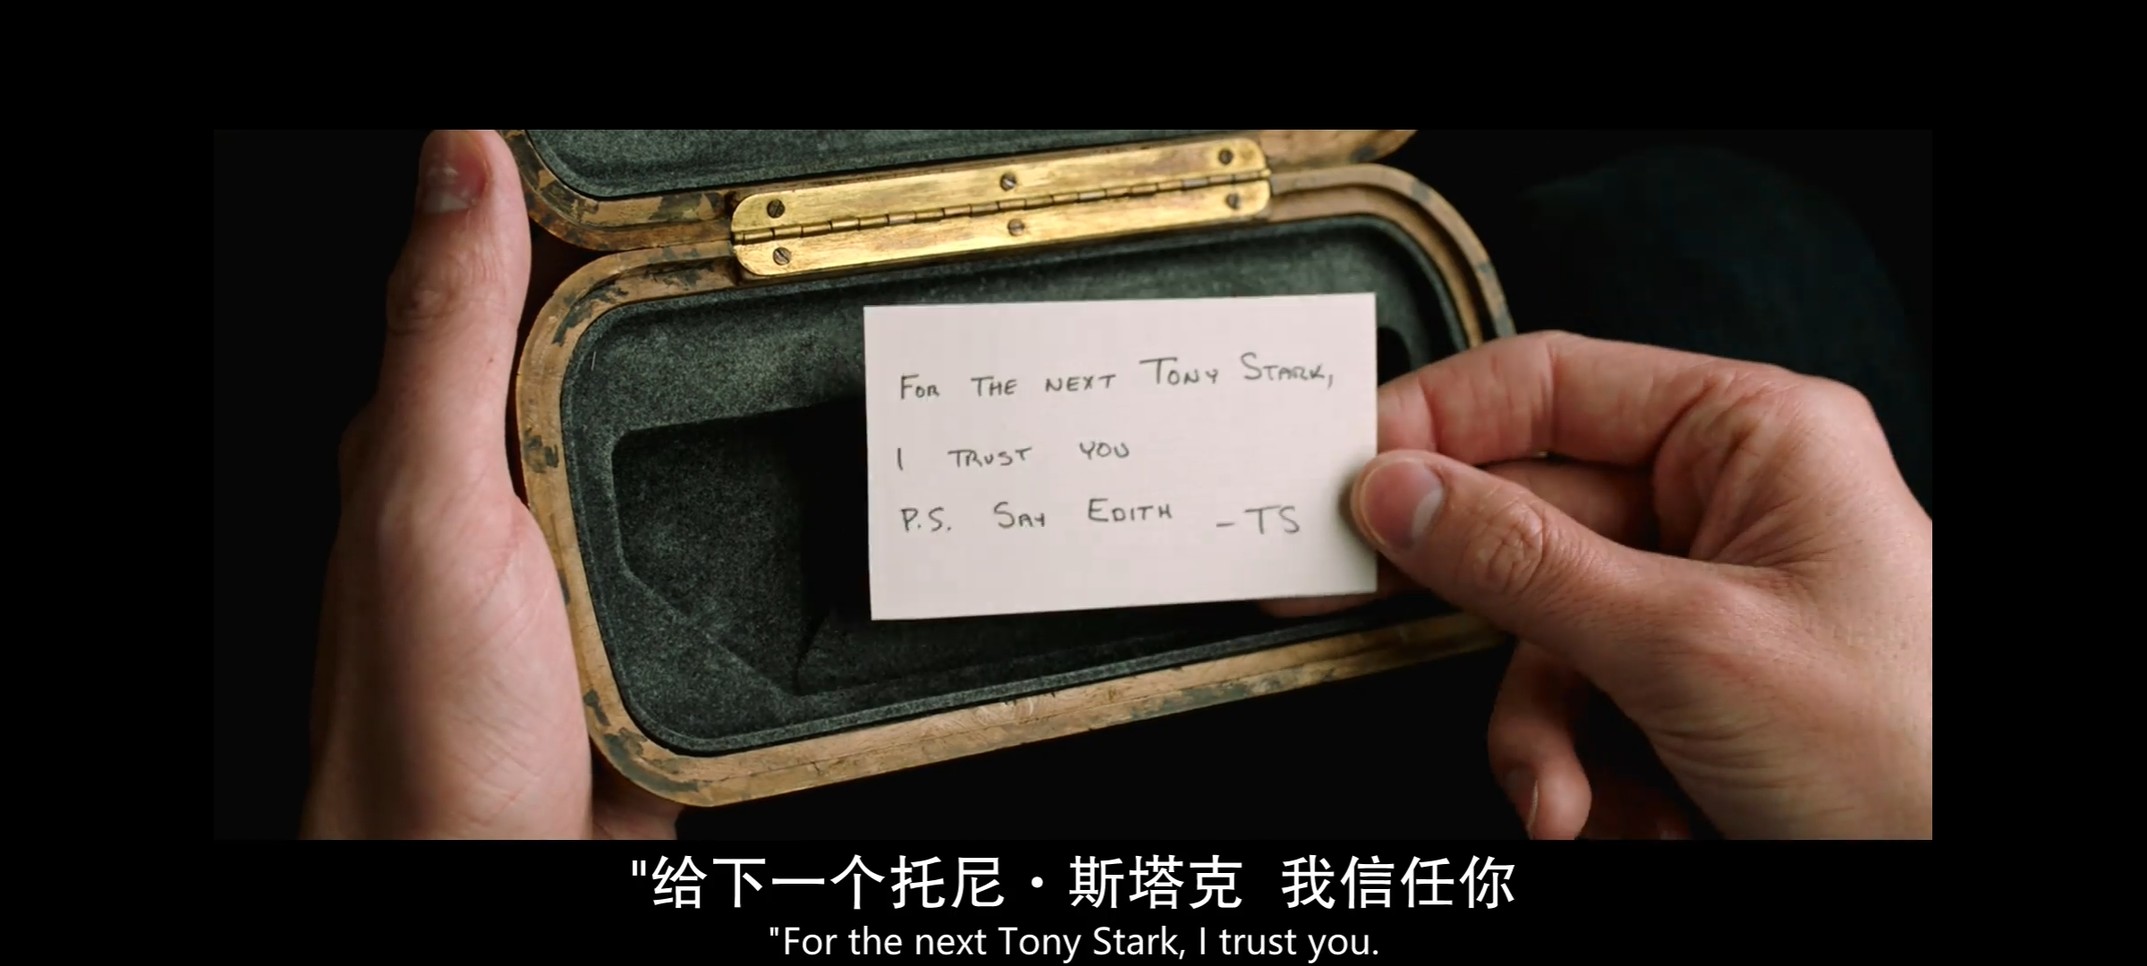 FOR THE NEXT TONY STARK,
I TRUST YOU
P.S. SAY EDITH -TS
"给下一个托尼·斯塔克 我信任你
"For the next Tony Stark, I trust you.